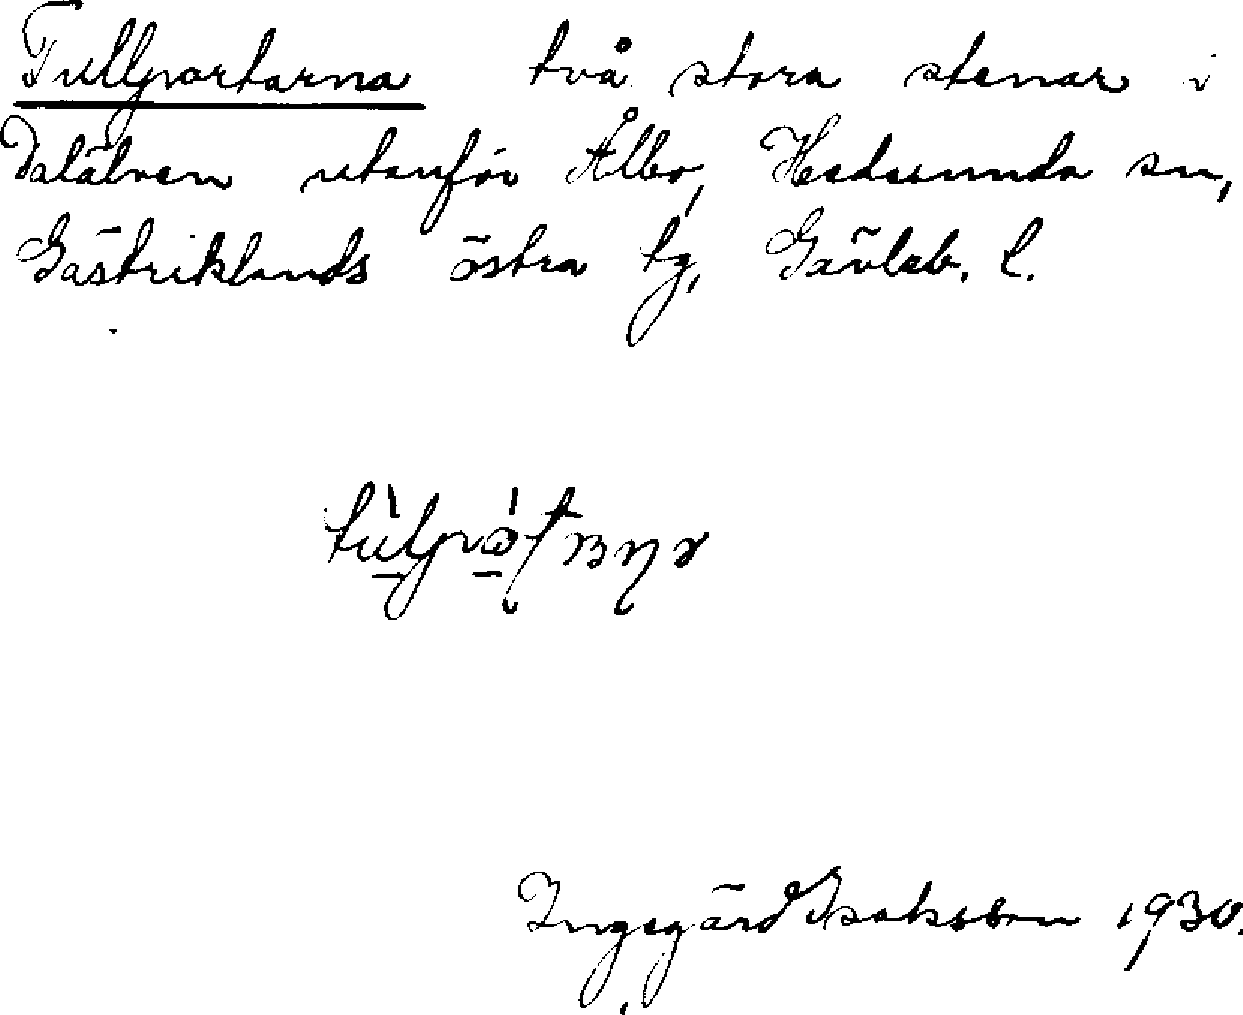 Tullportarna två stora stenar i
Dalälven utanför Ålbo, Hedesunda sn,
Gästriklands östra tg, Gävleb. l.
Ingegärd Isaksson 1930.